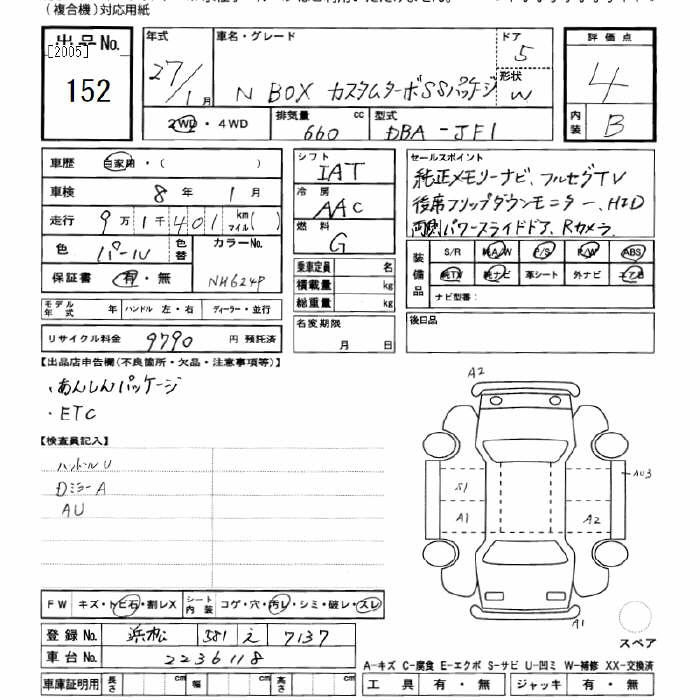 (複合機)対応用紙
出品No.
[2005]
152
年式
27/1月
車名・グレード
N BOX カスタムターボSSパッケージ
ドア
5
形状
W
評価点
4
内装
B
2WD・4WD
排気量
660 cc
型式
DBA-JF1
車歴 自家用・( )
車検 8年 1月
走行 9万1千401 km マイル( )
色 パール 色替
カラーNo.
NH624P
保証書 有・無
モデル年式 年 ハンドル 左・右 ディーラー・並行
リサイクル料金 9790 円 預託済
シフト
IAT
冷房
AAC
燃料
G
乗車定員 名
積載量 kg
総重量 kg
名変期限
月 日
セールスポイント
純正メモリーナビ、フルセグTV
後席フリップダウンモニター、HID
両側パワースライドドア、Rカメラ
装備品
S/R 純A/W P/S P/W ABS
純TV 純ナビ 革シート 外ナビ エアB
ナビ型番:
後日品
【出品店申告欄(不良箇所・欠品・注意事項等)】
・あんしんパッケージ
・ETC
【検査員記入】
ハンドルU
DミラーA
AU
A2
AU3
S1
A1
A2
A1
スペア
FW キズ・トビ石・割レX シート内装 コゲ・穴・汚レ・シミ・破レ・スレ
登録No. 浜松 581 え 7137
車台No. 2236118
車庫証明用 長さ cm 幅 cm 高さ cm
A-キズ C-腐食 E-エクボ S-サビ U-凹ミ W-補修 XX-交換済
工具 有・無 ジャッキ 有・無